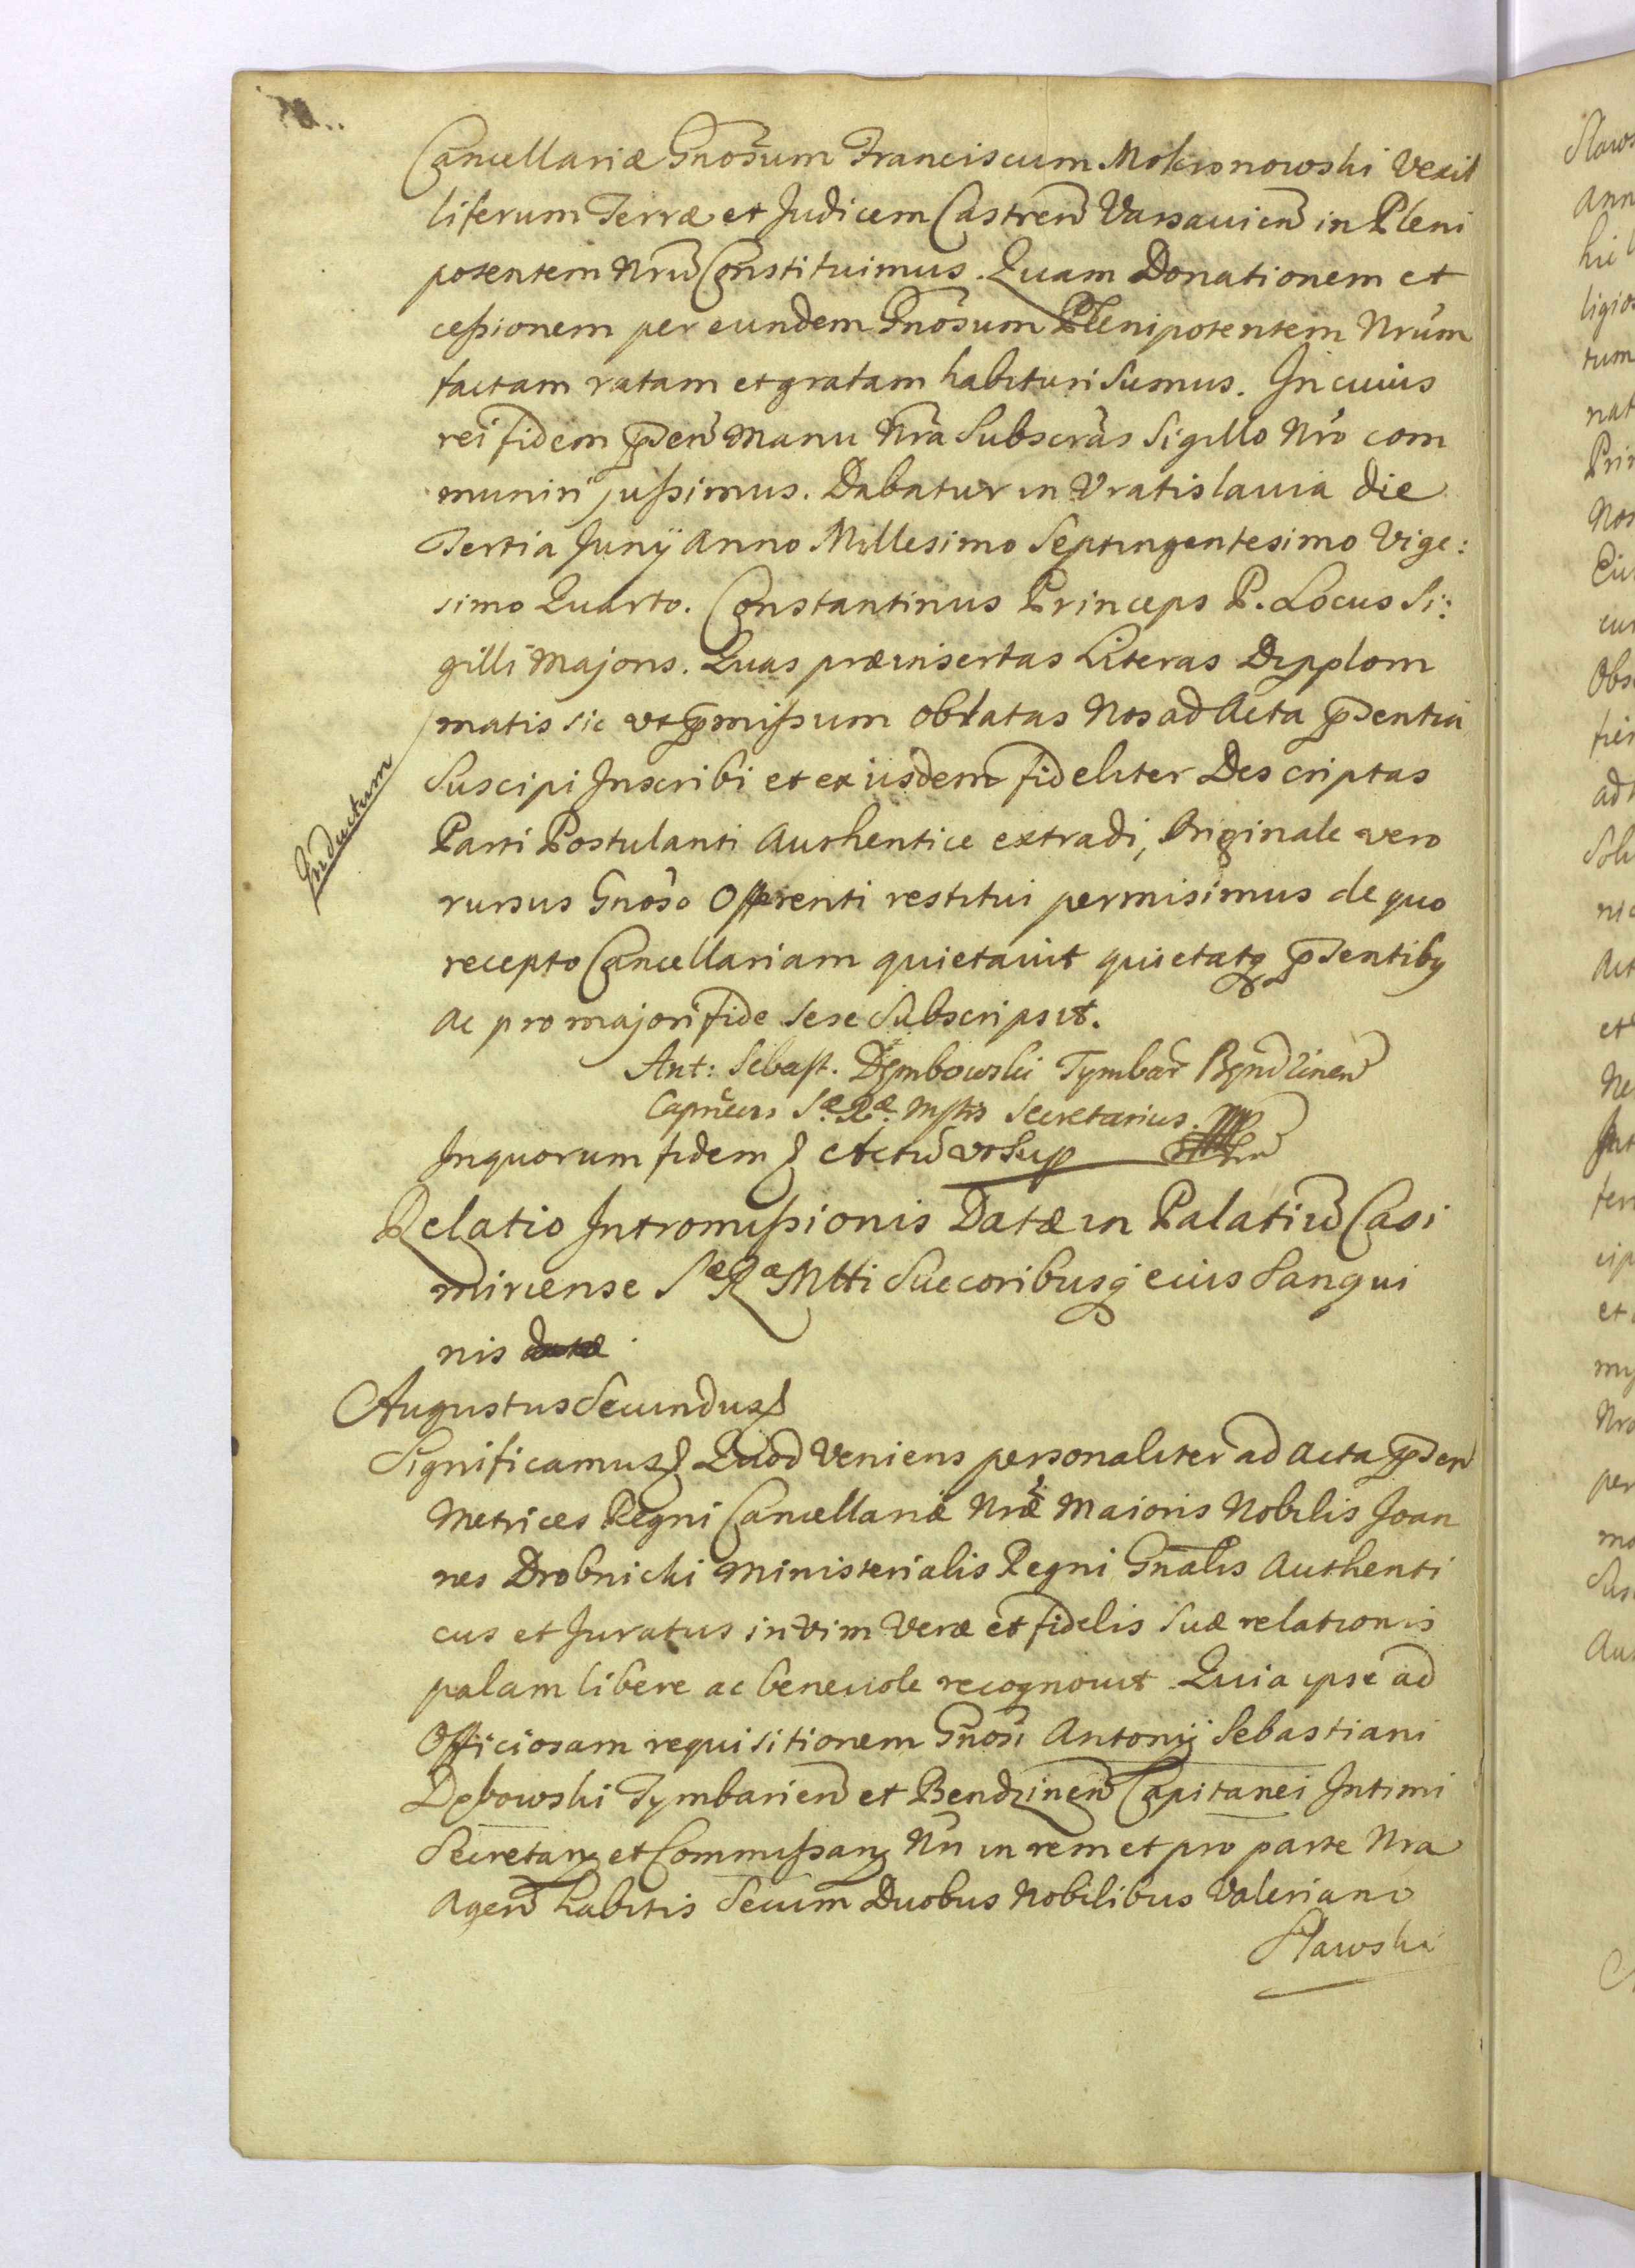 Cancellariæ Gnosum Franciscum Mokronowski Vexil
liferum Terræ et Judicem Castren Varsavien in Pleni
potentem Nrum Constituimus. Quam Donationem et
cessionem per eundem Gnosum Plenipotentem Nrum
factam ratam et gratam habituri sumus. In cuius
rei fidem pden manu Nra Subscras Sigillo Nro com
muniri jussimus. Dabatur in Vratislavia die
Tertia Junij Anno Millesimo Septingentesimo Vige:
simo Quarto. Constantinus Princeps P. Locus Si:
gilli Majoris. Quas præinsertas Literas Dypplom
matis sic ut pmissum oblatas Nos ad Acta pdentia
Suscipi Inscribi et ex iisdem fideliter Descriptas
Inductum
Parti Postulanti Authentice extradi, Originale vero
rursus Gnoso Offerenti restitui permisimus de quo
recepto Cancellariam quietavit quietatq pdentibq
ac pro majori fide sese Subscripsit.
Ant: Sebast. Dębowski Tymbar Byndzinen
Capneus S.æ R.æ Mstis Secretarius.
In quorum fidem Actu ut Sup
Relatio Intromissionis Datæ in Palatiu Casi
miriense Sæ Ræ Mtti Succoribusq eius Sangui
nis
Augustus Secundus
Significamus Quod Veniens personaliter ad Acta pden
Metrices Regni Cancellariæ Nræ Maioris Nobilis Joan
nes Drobnicki Ministerialis Regni Gnalis Authenti
cus et Juratus in vim Veræ et fidelis Suæ relationis
palam libere ac benevole recognovit Quia ipse ad
Officiosam requisitionem Gnosi Antonij Sebastiani
Dębowski Tymbarien et Bendzinen Capitanei Intimi
Secretarij et Commissarij Nri in rem et pro parte Nra
Agen habitis Secum Duobus Nobilibus Valeriano
Sławski